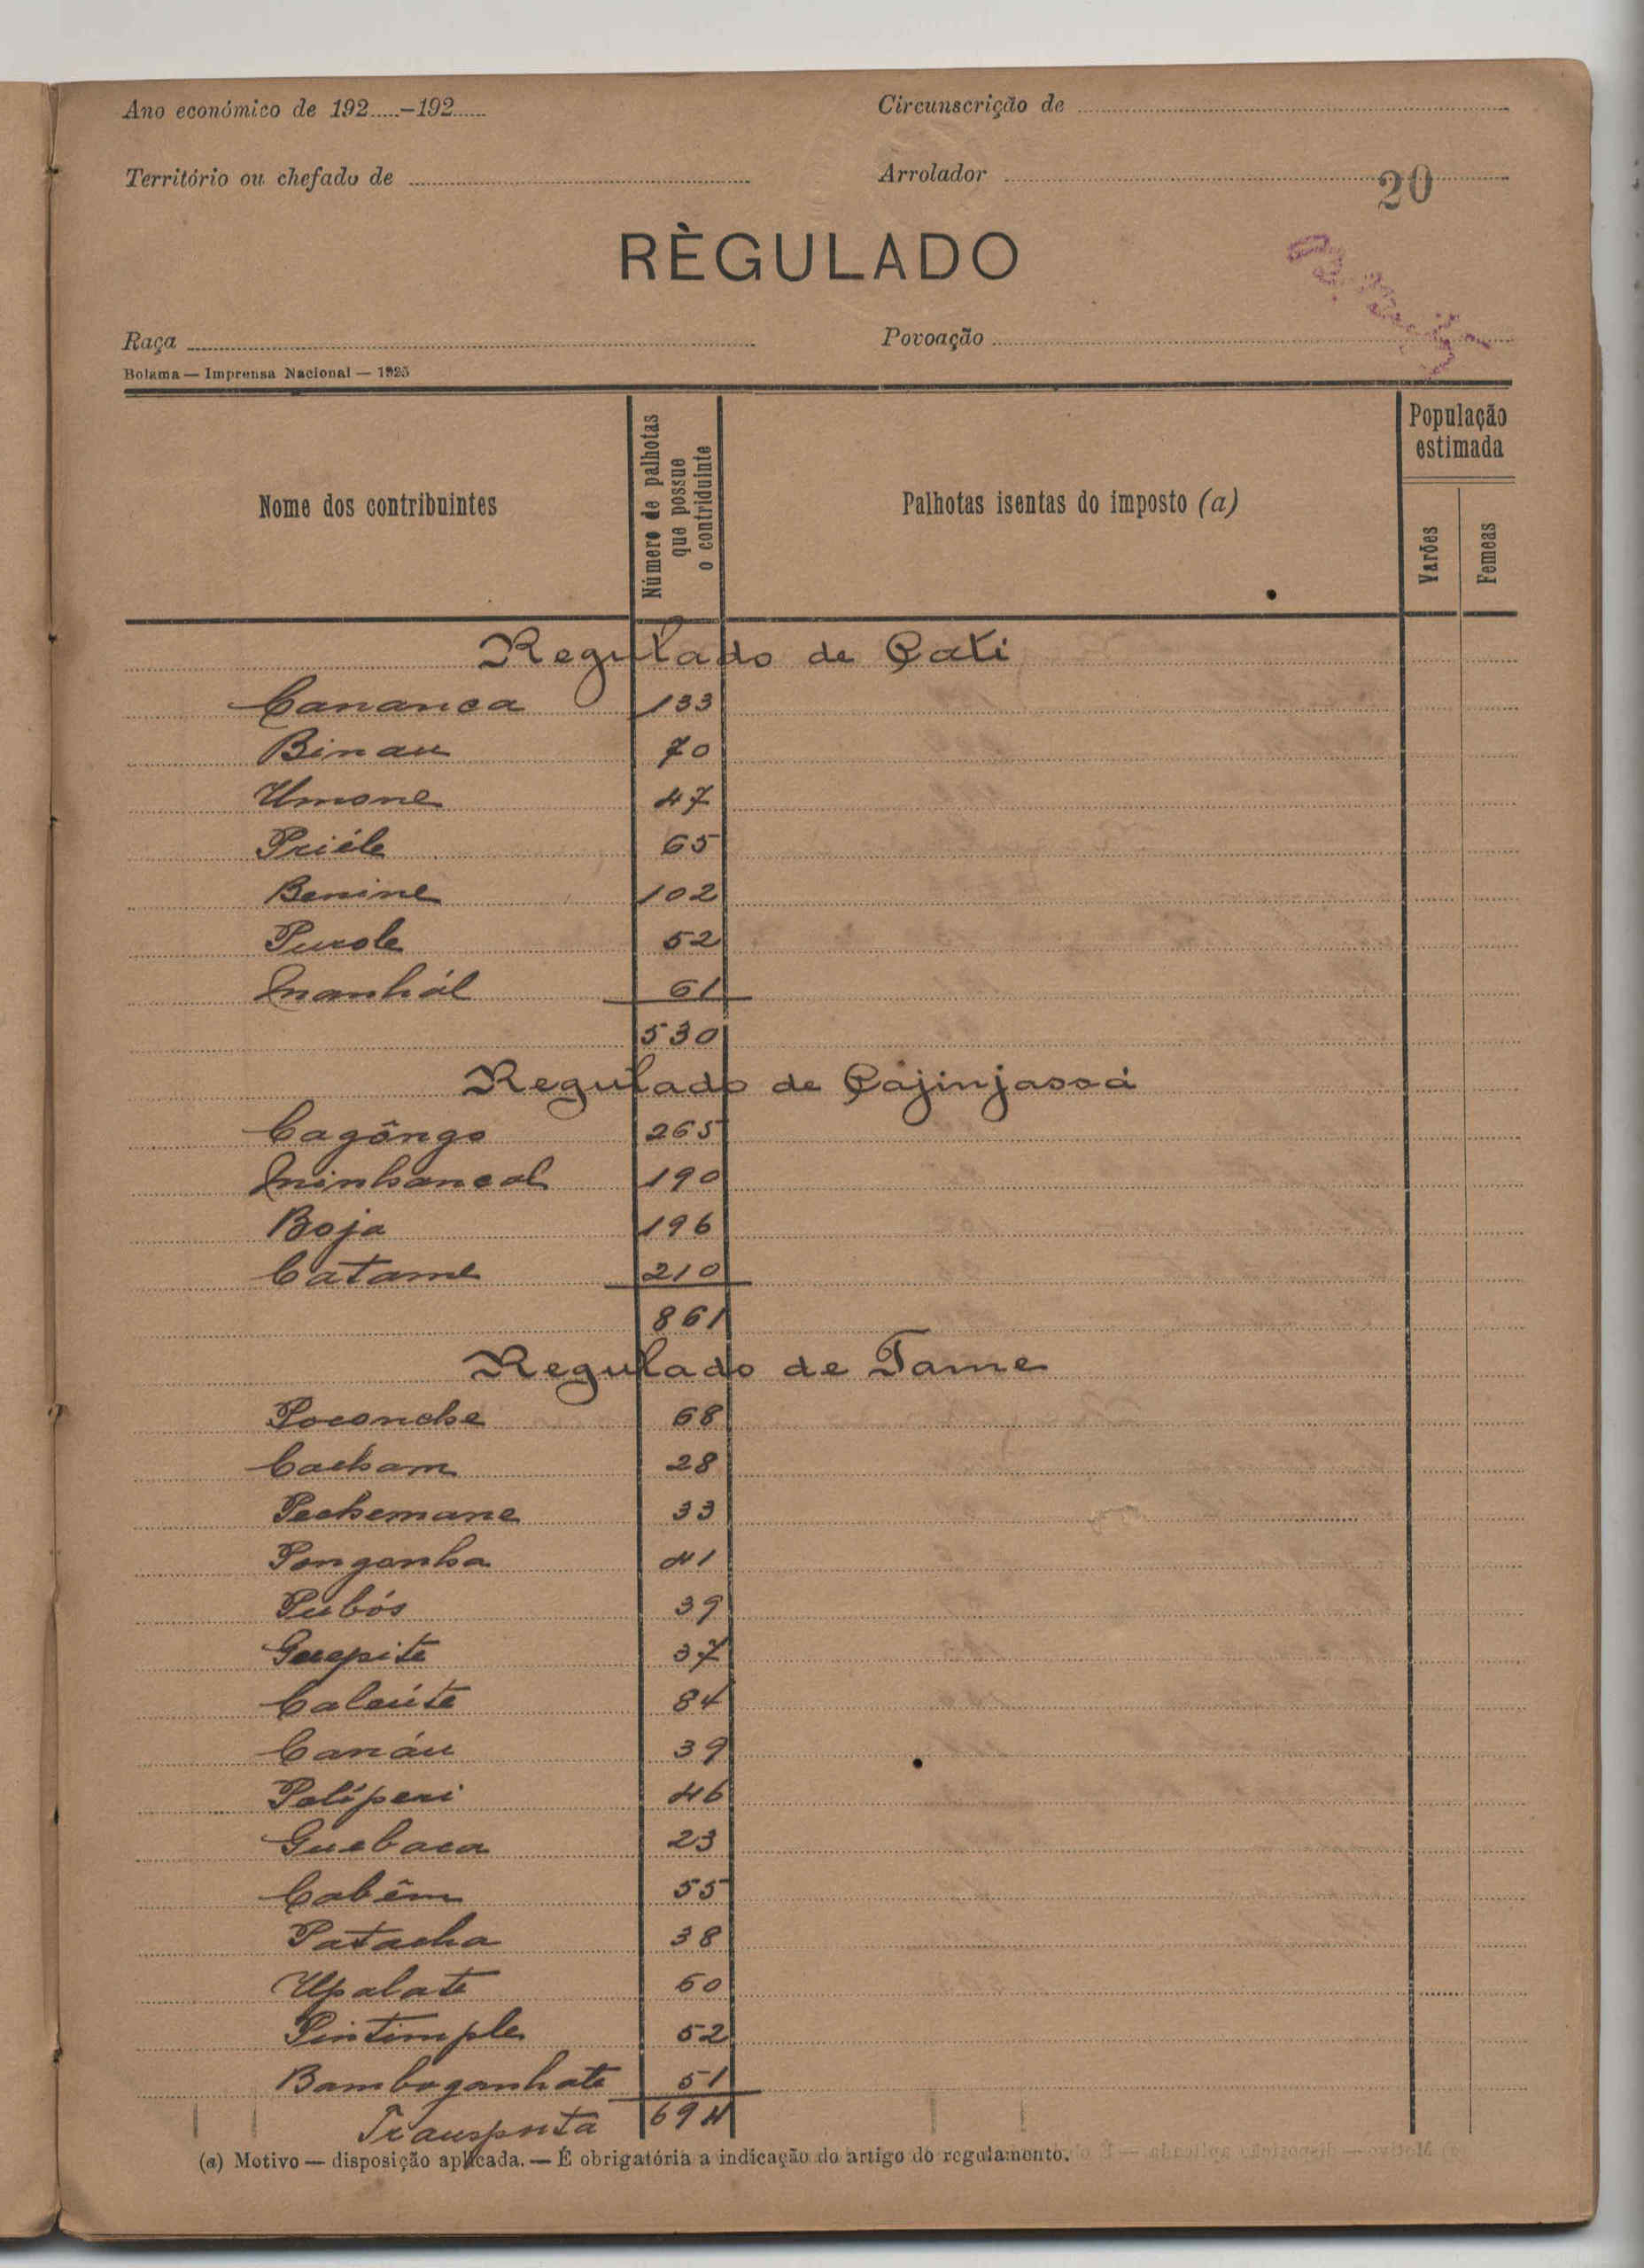 Ano económico de 192.....-192.....
Circunscrição de
Território ou chefado de
Arrolador
20
RÈGULADO
Raça
Povoação
Bolama — Imprensa Nacional — 1925
Nome dos contribuintes
Número de palhotas que possue o contriduinte
Palhotas isentas do imposto (a)
População estimada
Varões
Femeas
Regulado de Cati
Cananca 133
Binau 70
Umone 47
Priéle 65
Benine 102
Purole 52
Inanhál 61
530
Regulado de Cajinjassá
Cagôngo 265
Ininhancal 190
Boja 196
Catame 210
861
Regulado de Tame
Poconche 68
Cacham 28
Pechemane 33
Ponganha 41
Pubós 39
Guepite 37
Caleúte 84
Canáu 39
Polípeni 46
Guebaca 23
Cabêm 55
Patacha 38
Upalate 60
Pintimple 52
Bamboganhate 51
Transporta 694
(a) Motivo — disposição aplicada. — É obrigatória a indicação do artigo do regulamento.